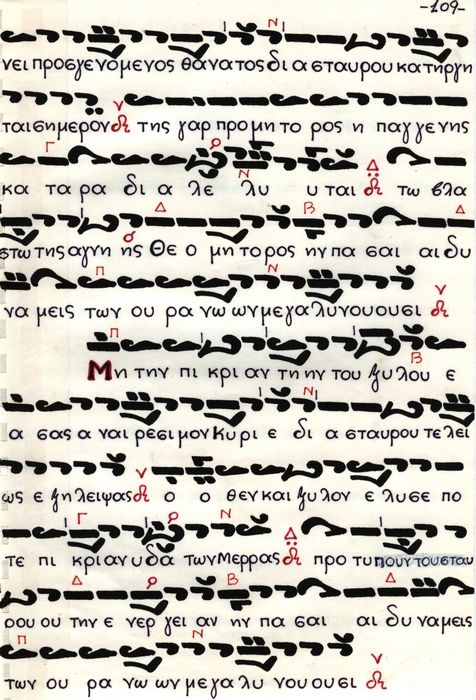 -109-
νει προσγενομενος θανατος δι α σταυρου κατηργη
ται σημερον της γαρ προ μη το ρος η παγγενης
κα τα ρα δι α λε λυ υ ται τω βλα
στω της αγνη ης Θε ο μη το ρος ην πα σαι αι δυ
να μεις των ου ρα νω ων μεγα λυ νου ου σι
Μη την πι κρι αν τη ην του ξυ λου ε
α σας α ναι ρε σι μον Κυρι ε δι α σταυρου τε λει
ως ε ξη λειψας ο ο θεν και ξυ λον ε λυ σε πο
τε πι κρι αν υ δα των Μερρας προ τυ που ουν του σταυ
ρου ου την ε νερ γει αν ην πα σαι αι δυ να μεις
των ου ρα νω ων με γα λυ νου ου σι